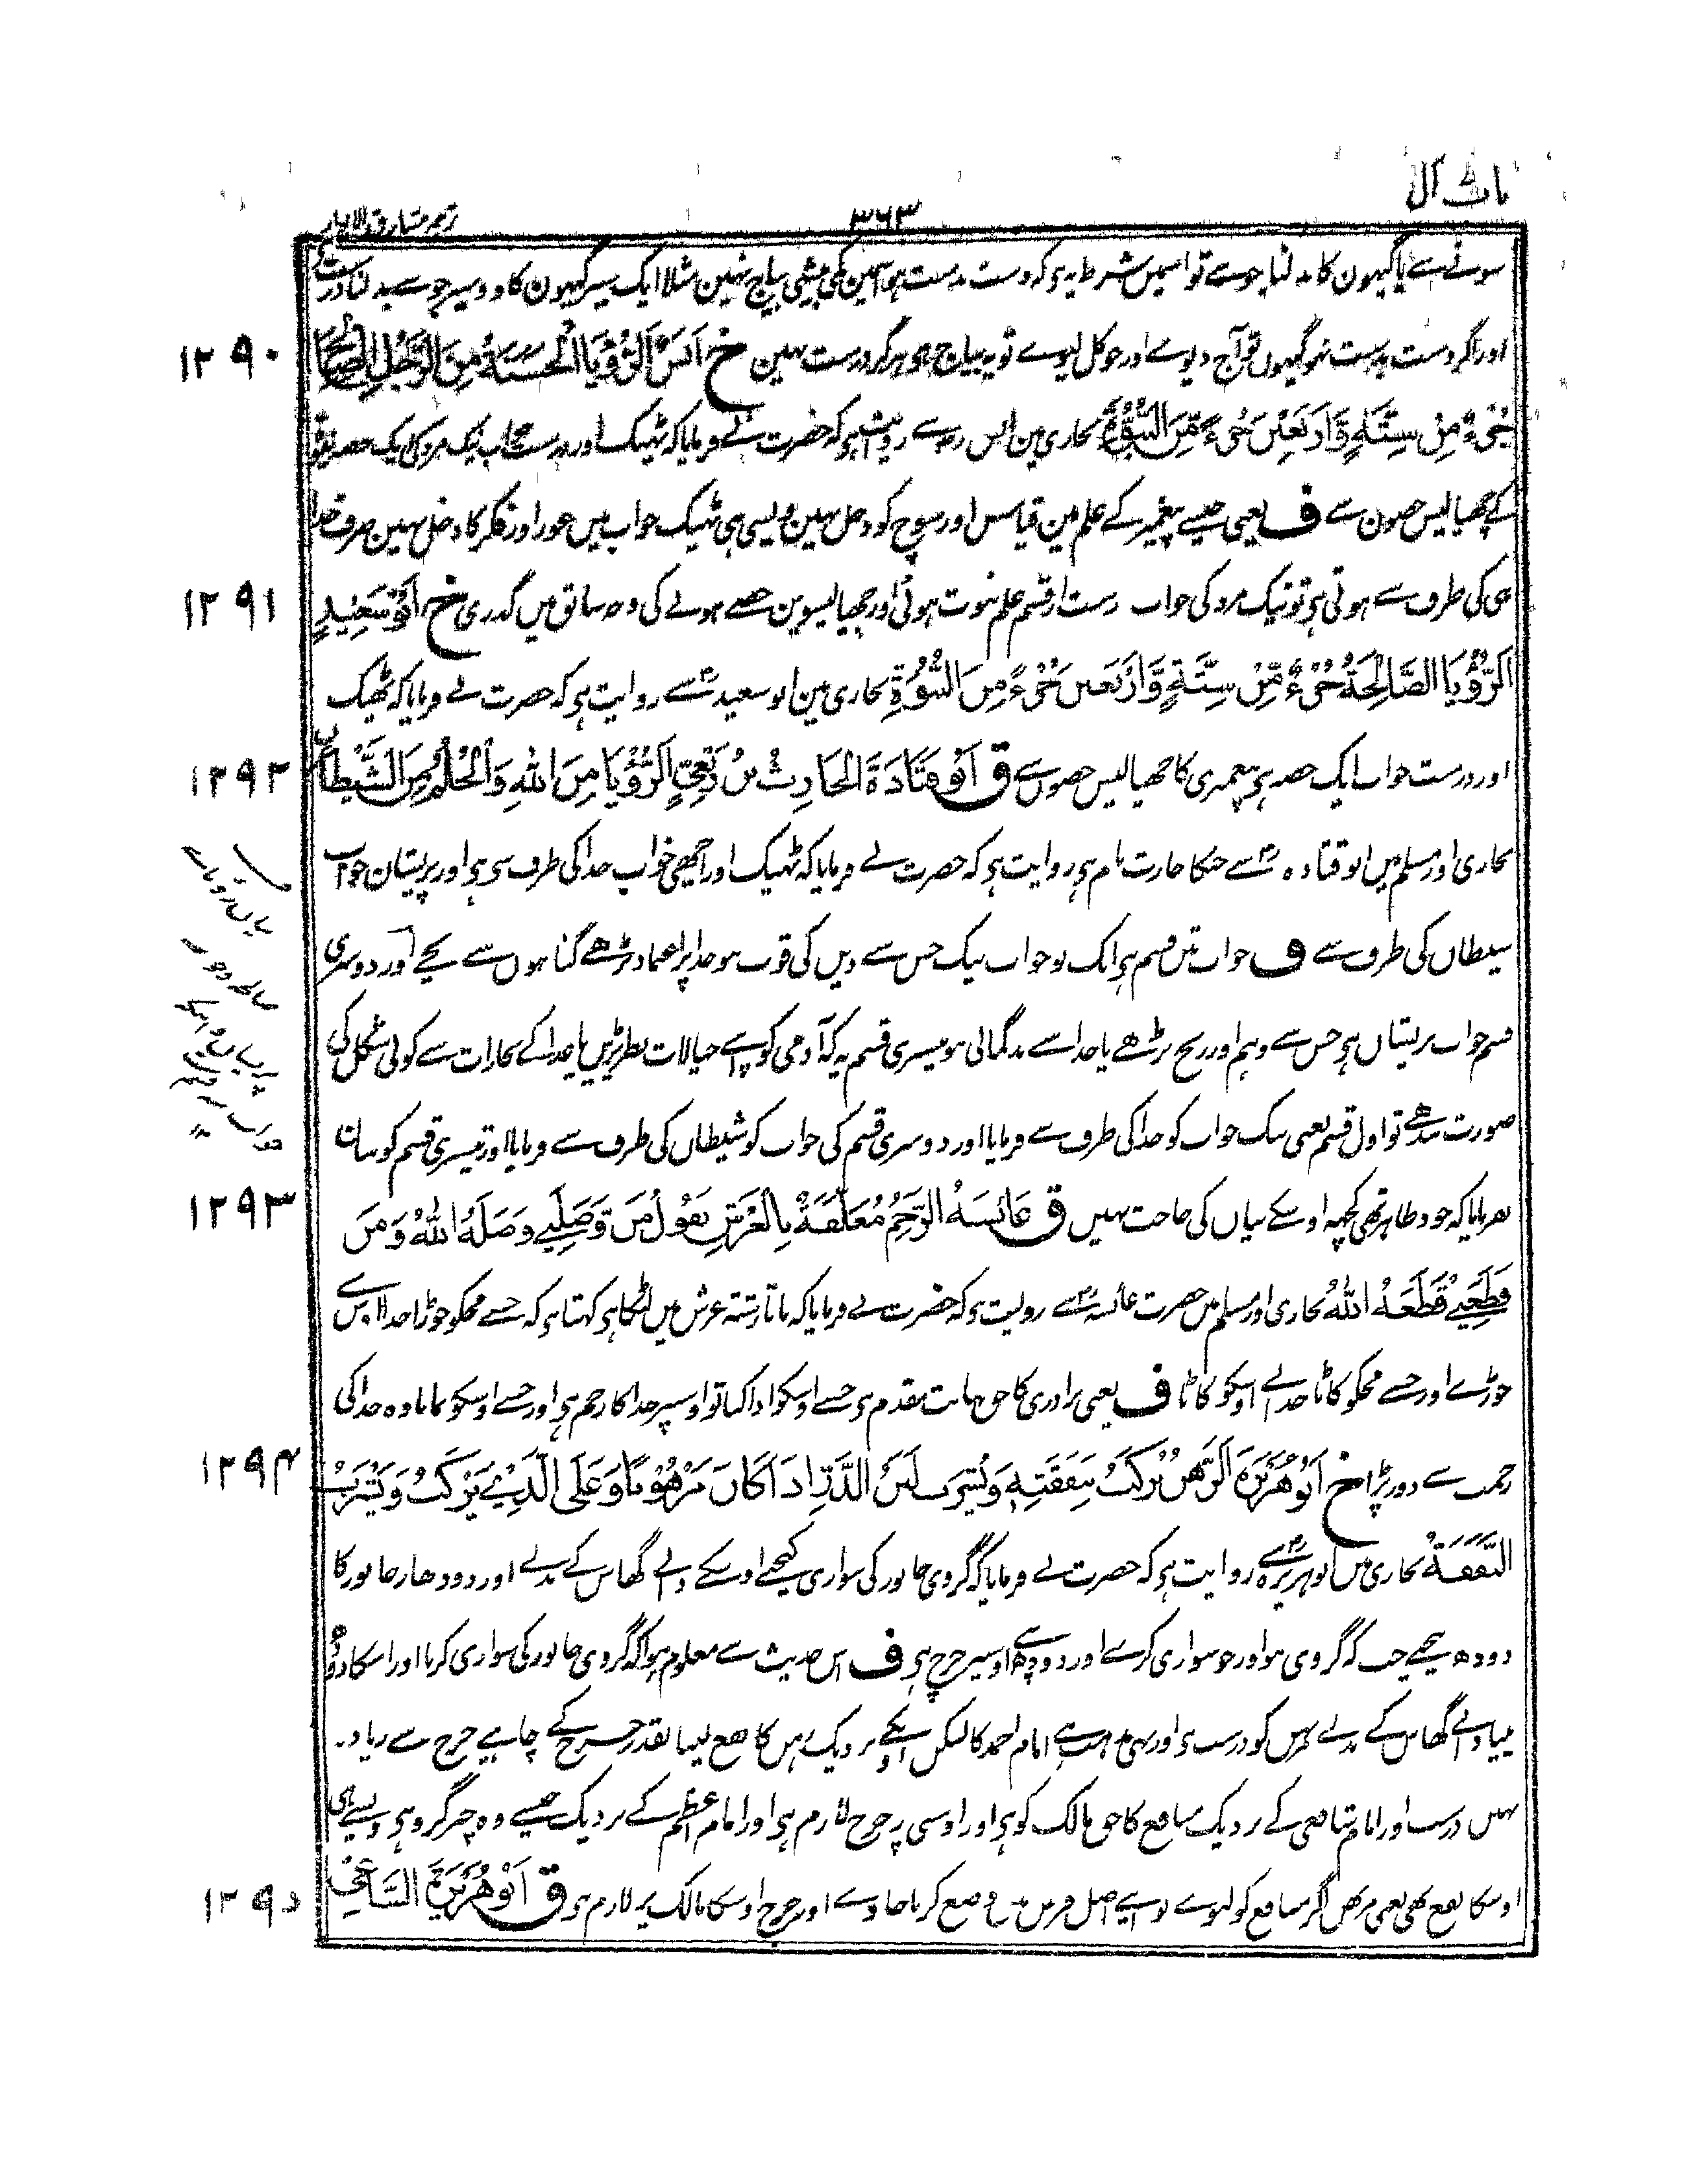 باب ال
۳۶۳
ترجمہ مشارق الانوار
سونے سے یا گیہون کا بدلنا جو سے تو اسمیں شرط یہ ہی کہ دست بدست ہو اسمین کمی بیشی بیاج نہین مثلا ایک سیر گیہون کا دو سیر جو سے بدلنا درست ہی
اور اگر دست بدست نہو گیہوں تو آج دیوے اور جو کل لیوے تو یہ بیاج ہی ہرگز درست نہین خ اَنَسٌ اَلرُّؤْيَا الْحَسَنَةُ مِنَ الرَّجُلِ الصَّالِحِ
۱۲۹۰
جُزْءٌ مِنْ سِتَّةٍ وَّاَرْبَعِيْنَ جُزْءًا مِّنَ النُّبُوَّةِ بخاری مین انس رض سے روایت ہی کہ حضرت نے فرمایا کہ ٹھیک اور درست خواب نیک مرد کی ایک حصہ نبوت
کے چھیالیس حصون سے ف یعنی جیسے پیغمبر کے علم مین قیاس اور سوچ کو دخل نہین ویسی ہی ٹھیک خواب میں غور اور فکر کا دخل نہین صرف خدا
ہی کی طرف سے ہوتی ہی تو نیک مرد کی خواب درست از قسم علم نبوت ہوئی اور چھیالیسوین حصے ہونے کی وجہ سابق میں گذری خ اَبُوْ سَعِيْدٍ
۱۲۹۱
اَلرُّؤْيَا الصَّالِحَةُ جُزْءٌ مِّنْ سِتَّةٍ وَّاَرْبَعِيْنَ جُزْءًا مِنَ النُّبُوَّةِ بخاری مین ابو سعید رض سے روایت ہی کہ حضرت نے فرمایا کہ ٹھیک
اور درست خواب ایک حصہ ہی پیغمبری کا چھیالیس حصوں سے ق اَبُوْ قَتَادَةَ الْحَارِثُ بْنُ رِبْعِيٍّ اَلرُّؤْيَا مِنَ اللّٰهِ وَالْحُلْمُ مِنَ الشَّيْطَانِ
۱۲۹۲
بخاری اور مسلم میں ابو قتادہ رض سے جنکا حارث نام ہی روایت ہی کہ حضرت نے فرمایا کہ ٹھیک اور اچھی خواب خدا کی طرف سے ہی اور پریشان خواب
شیطاں کی طرف سے ف خواب تین قسم ہی ایک تو خواب نیک جس سے دیں کی قوت ہو خدا پر اعتماد بڑھے گناہوں سے بچے اور دوسری
قسم خواب پریشاں ہی جس سے وہم اور رنج بڑھے یا خدا سے بدگمانی ہو تیسری قسم یہ کہ آدمی کو اپنے خیالات نظر پڑیں یا غذا کے بخارات سے کوئی شکل کی
صورت بندھے تو اول قسم یعنی نیک خواب کو خدا کی طرف سے فرمایا اور دوسری قسم کی خواب کو شیطاں کی طرف سے فرمایا اور تیسری قسم کو بیان
نفرمایا کہ خود ظاہر تھی کچھہ اوسکے بیاں کی حاجت نہیں ق عَائِشَةُ الرَّحِمُ مُعَلَّقَةٌ بِالْعَرْشِ تَقُوْلُ مَنْ وَصَلَنِيْ وَصَلَهُ اللّٰهُ وَمَنْ
۱۲۹۳
قَطَعَنِيْ قَطَعَهُ اللّٰهُ بخاری اور مسلم میں حضرت عائشہ رض سے روایت ہی کہ حضرت نے فرمایا کہ ناتا رشتہ عرش میں لٹکا ہی کہتا ہی کہ جسنے مجکو جوڑا خدا اس سے
جوڑے اور جسنے مجکو کاٹا خدا نے اوسکو کاٹا ف یعنی برادری کا حق نہایت مقدم ہی جسنے اوسکو ادا کیا تو اوسپر خدا کا رحم ہی اور جسنے اوسکو نمانا وہ خدا کی
رحمت سے دور پڑا خ اَبُوْ هُرَيْرَةَ اَلرَّهْنُ يُرْكَبُ بِنَفَقَتِهٖ وَيُشْرَبُ لَبَنُ الدَّرِّ اِذَا كَانَ مَرْهُوْنًا وَعَلَى الَّذِيْ يَرْكَبُ وَيَشْرَبُ
۱۲۹۴
النَّفَقَةُ بخاری میں ابو ہریرہ رض سے روایت ہی کہ حضرت نے فرمایا کہ گروی جانور کی سواری کیجئے اوسکے دانے گھاس کے بدلے اور دودھار جانور کا
دودھ پیجیے جب کہ گروی ہو اور جو سواری کرے اور دودھ پیے اوسپر خرچ ہی ف اس حدیث سے معلوم ہوا کہ گروی جانور کی سواری کرنا اور اسکا دودھ
پینا دانے گھاس کے بدلے مرتہن کو درست ہی اور یہی مذہب ہی امام احمد کا لیکن اونکے نزدیک رہن کا نفع لینا بقدر خرچ کے چاہیے خرچ سے زیادہ
نہیں درست اور امام شافعی کے نزدیک منافع کا حق مالک کو ہی اور اوسی پر خرچ لازم ہی اور امام اعظم کے نزدیک جیسے وہ چیز گرو ہی ویسے ہی
اوسکا نفع بھی یعنی مرتہن اگر منافع کو لیوے تو اپنے اصل قرض میں وضع کرنا جاوے اور خرچ اوسکا مالک پر لازم ہی ق اَبُوْ هُرَيْرَةَ السَّاعِيْ
۱۲۹۵